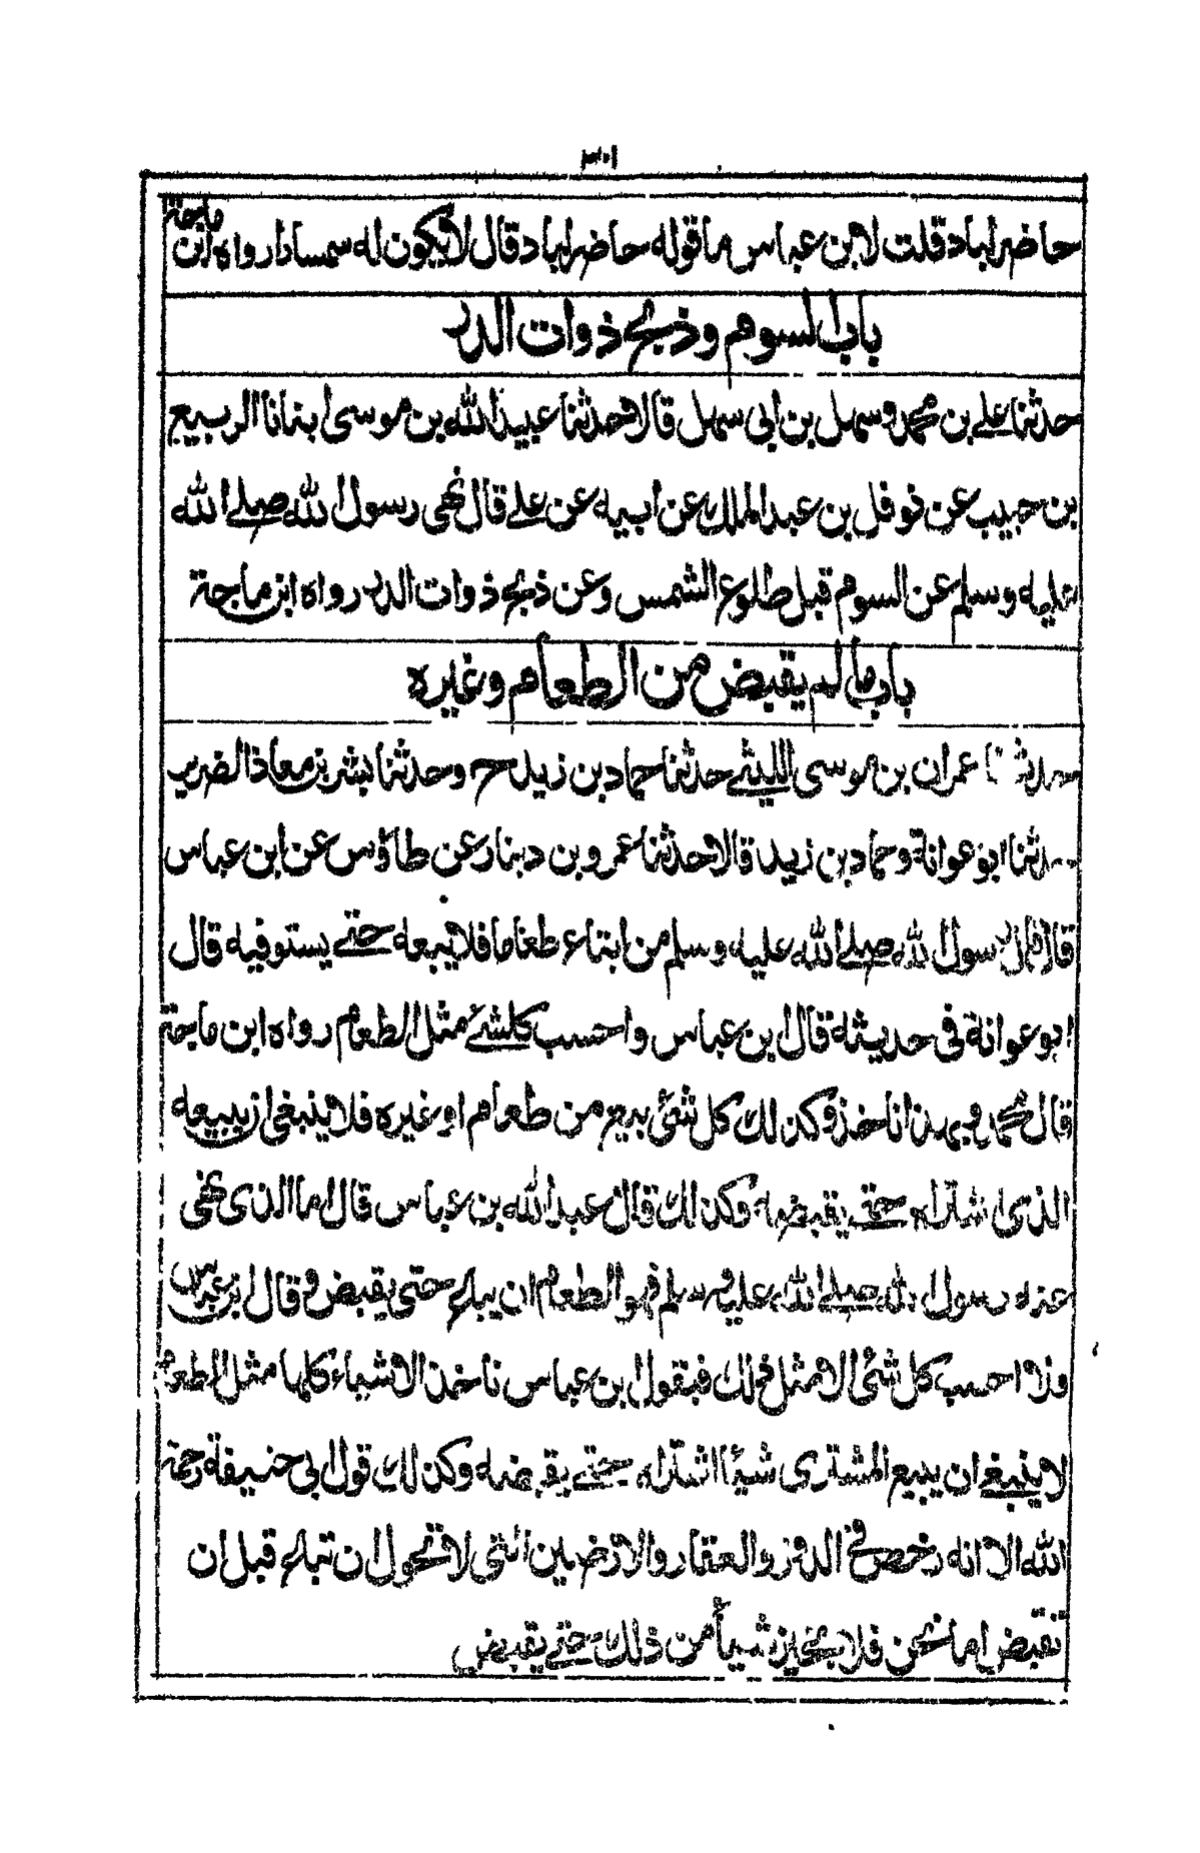 ٣٠١
حاضر لباد قلت لابن عباس ما قوله حاضر لباد قال لا يكون له سمسارا رواه ابن ماجة
باب السوم و ذبح ذوات الدر
حدثنا علي بن محمد وسهل بن ابي سهل قالا حدثنا عبيد الله بن موسى انبانا الربيع
بن حبيب عن نوفل بن عبد الملك عن ابيه عن علي قال نهى رسول الله صلى الله
عليه وسلم عن السوم قبل طلوع الشمس وعن ذبح ذوات الدر رواه ابن ماجة
باب ما لم يقبض من الطعام وغيره
حدثنا عمران بن موسى الليثي حدثنا حماد بن زيد ح وحدثنا بشر بن معاذ الضرير
حدثنا ابو عوانة وحماد بن زيد قالا حدثنا عمرو بن دينار عن طاؤس عن ابن عباس
قال قال رسول الله صلى الله عليه وسلم من ابتاع طعاما فلا يبعه حتى يستوفيه قال
ابو عوانة في حديثه قال بن عباس واحسب كلشئ مثل الطعام رواه ابن ماجة
قال محمد وبهذا ناخذ وكذلك كل شئ بيع من طعام او غيره فلا ينبغي ان يبيعه
الذي اشتراه حتى يقبضه وكذلك قال عبد الله بن عباس قال اما الذي نهى
عنه رسول الله صلى الله عليه وسلم فهو الطعام ان يباع حتى يقبض وقال ابن عباس
ولا احسب كل شئ الا مثل ذلك فبقول بن عباس ناخذ الاشياء كلها مثل الطعام
لا ينبغي ان يبيع المشتري شيئا اشتراه حتى يقبضه وكذلك قول ابي حنيفة رحمة
الله الا انه رخص في الدور والعقار والارضين التي لا تحول ان تباع قبل ان
تقبض اما نحن فلا نجيز شيأ من ذلك حتى يقبض